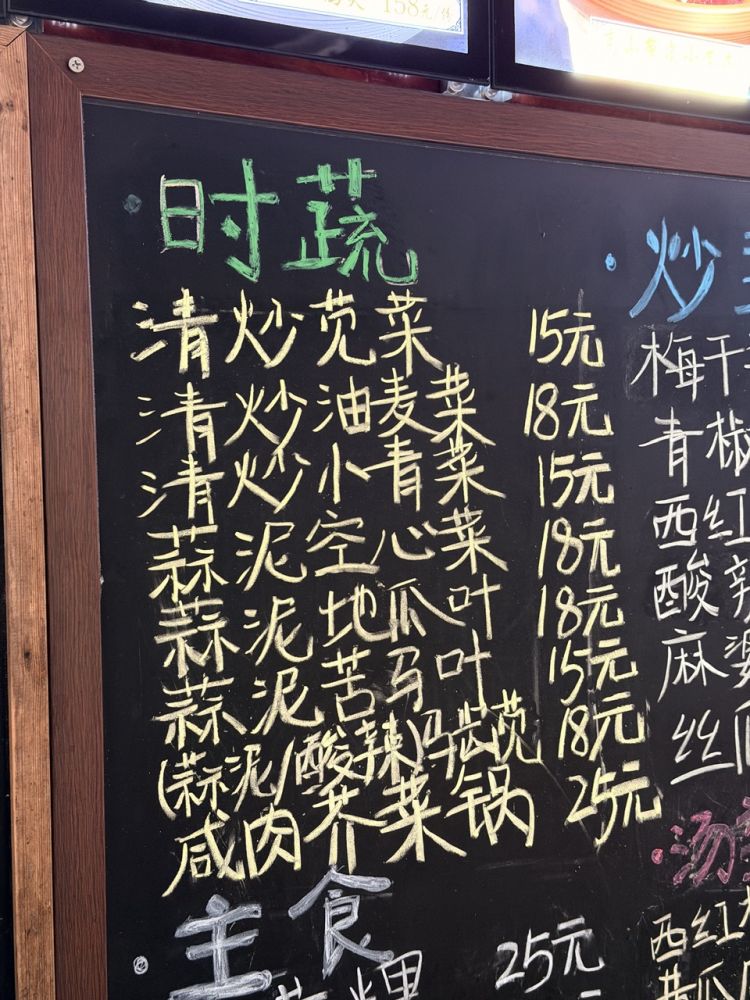 158元/
时蔬
清炒苋菜 15元
清炒油麦菜 18元
清炒小青菜 15元
蒜泥空心菜 18元
蒜泥地瓜叶 18元
蒜泥苦马叶 15元
(蒜泥/酸辣)马齿苋 18元
咸肉芥菜锅 25元
主食
粿 25元
炒
梅干
青椒
西红
酸辣
麻婆
丝瓜
汤
西红
黄瓜